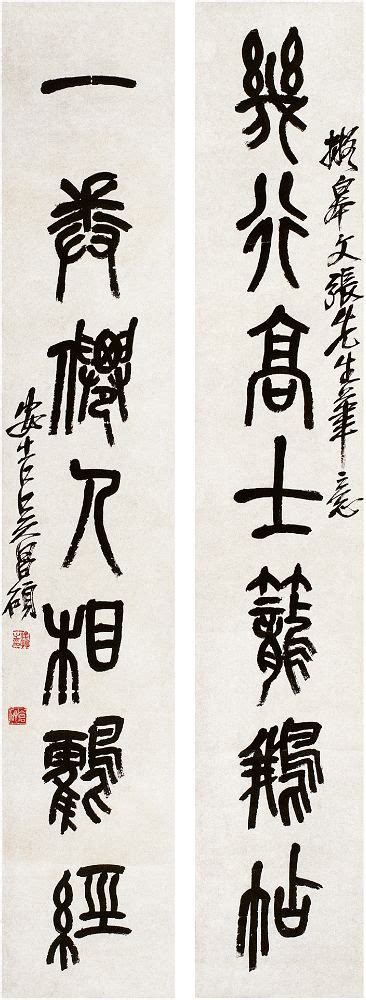 幾行高士籠鵝帖
擬皋文張先生筆意
一卷僊人相鶴經
安吉吳昌碩